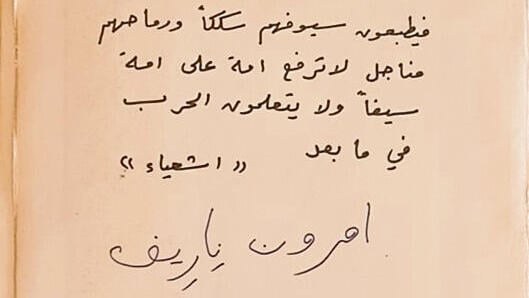 فيطبعون سيوفهم سككاً ورماحهم
مناجل لا ترفع امة على امة
سيفاً ولا يتعلمون الحرب
في ما بعد
« اشعياء »
امرون ياريف